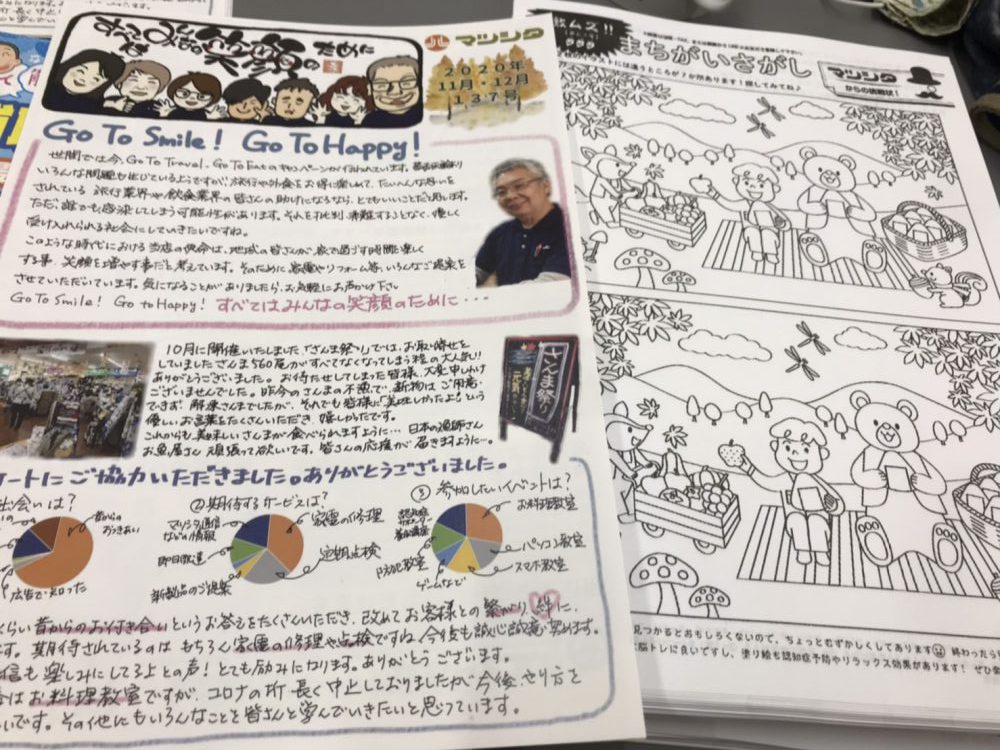 すべてはみんなの笑顔のために
マツシタ
2020年
11月・12月
137号
Go To Smile! Go To Happy!
世間では今、Go To Travel、Go To Eatのキャンペーンが行われています。
いろんな問題も生じているようですが、旅行や外食をお得に楽しめて、たいへんな思いを
されている旅行業界や飲食業界の皆さんの助けになるなら、とてもいいことだと思います。
ただ、誰でも感染してしまう可能性があります。それを批判、非難することなく、優しく
受け入れられる社会にしていきたいですね。
このような時代における当店の使命は、地域の皆さんが、家で過ごす時間を楽しく
する事、笑顔を増やす事だと考えています。そのために、家電やリフォーム等、いろんなご提案を
させていただいています。気になることがありましたら、お気軽にお声かけ下さい
Go To Smile! Go to Happy! すべてはみんなの笑顔のために・・・
10月に開催いたしました「さんま祭り」では、お取り寄せを
していましたさんま560尾がすべてなくなってしまう程の大人気!!
ありがとうございました。お待たせしてしまった皆様、大変申しわけ
ございませんでした。昨今のさんまの不漁で、新物はご用意
できず、解凍さんまでしたが、それでも皆様に「美味しかったよ」という
優しいお言葉をたくさんいただき、嬉しかったです。
これからも、美味しいさんまが食べられますように・・・日本の漁師さん
お魚屋さん頑張って欲しいです。皆さんの応援が届きますように・・。
さんま祭り
ートにご協力いただきました。ありがとうございました。
出会いは?
昔からのおつきあい
広告で知った
②期待するサービスは?
マツシタ通信などの情報
即日配達
新製品のご提案
家電の修理
定期点検
③参加したいイベントは?
防犯教室
ゲームなど
お料理教室
パソコン教室
スマホ教室
くらい昔からのお付き合いというお答えをたくさんいただき、改めてお客様との繋がり、絆に、
す。期待されているのは、もちろん家電の修理や点検ですね。今後も誠心誠意努めます。
信も楽しみにしてるよとの声!とても励みになります。ありがとうございます。
はお料理教室ですが、コロナの所長く中止しておりましたが今後、やり方を
いです。その他にもいろんなことを皆さんと学んでいきたいと思っています。
まちがいさがし
イラストには違うところが7か所あります!探してみてね♪
マツシタ
からの挑戦状!
見つかるとおもしろくないので、ちょっとむずかしくしてあります 終わったら
脳トレに良いですし、塗り絵も認知症予防やリラックス効果があります!